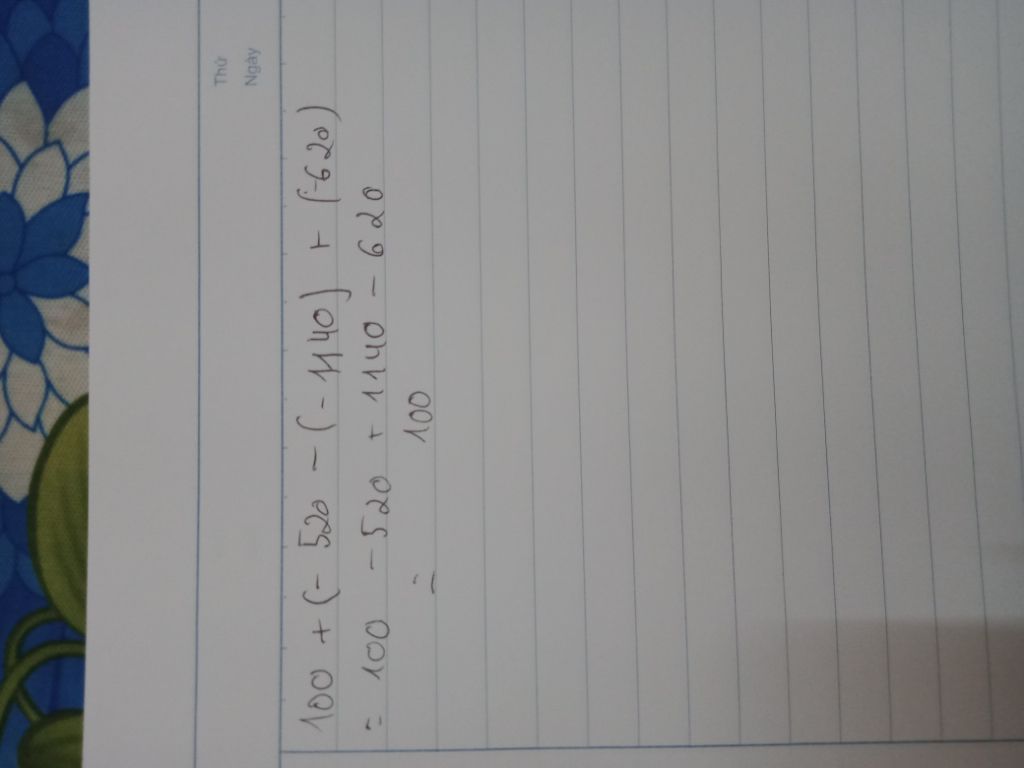 Thứ
Ngày
100 + (- 520 - (- 1140] + (-620)
= 100 - 520 + 1140 - 620
= 100